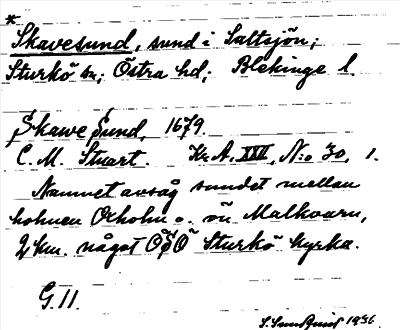 *
Skavesund, sund i Saltsjön;
Sturkö sn; Östra hd; Blekinge l.
Skawe Sund, 1679.
C. M. Stuart. Kr. A. XXII, N:o 30, 1.
Namnet avsåg sundet mellan
holmen Oxholm o. ön Malkvarn,
2 km. något OSO Sturkö kyrka.
G. 11.
S. Sundquist 1936.